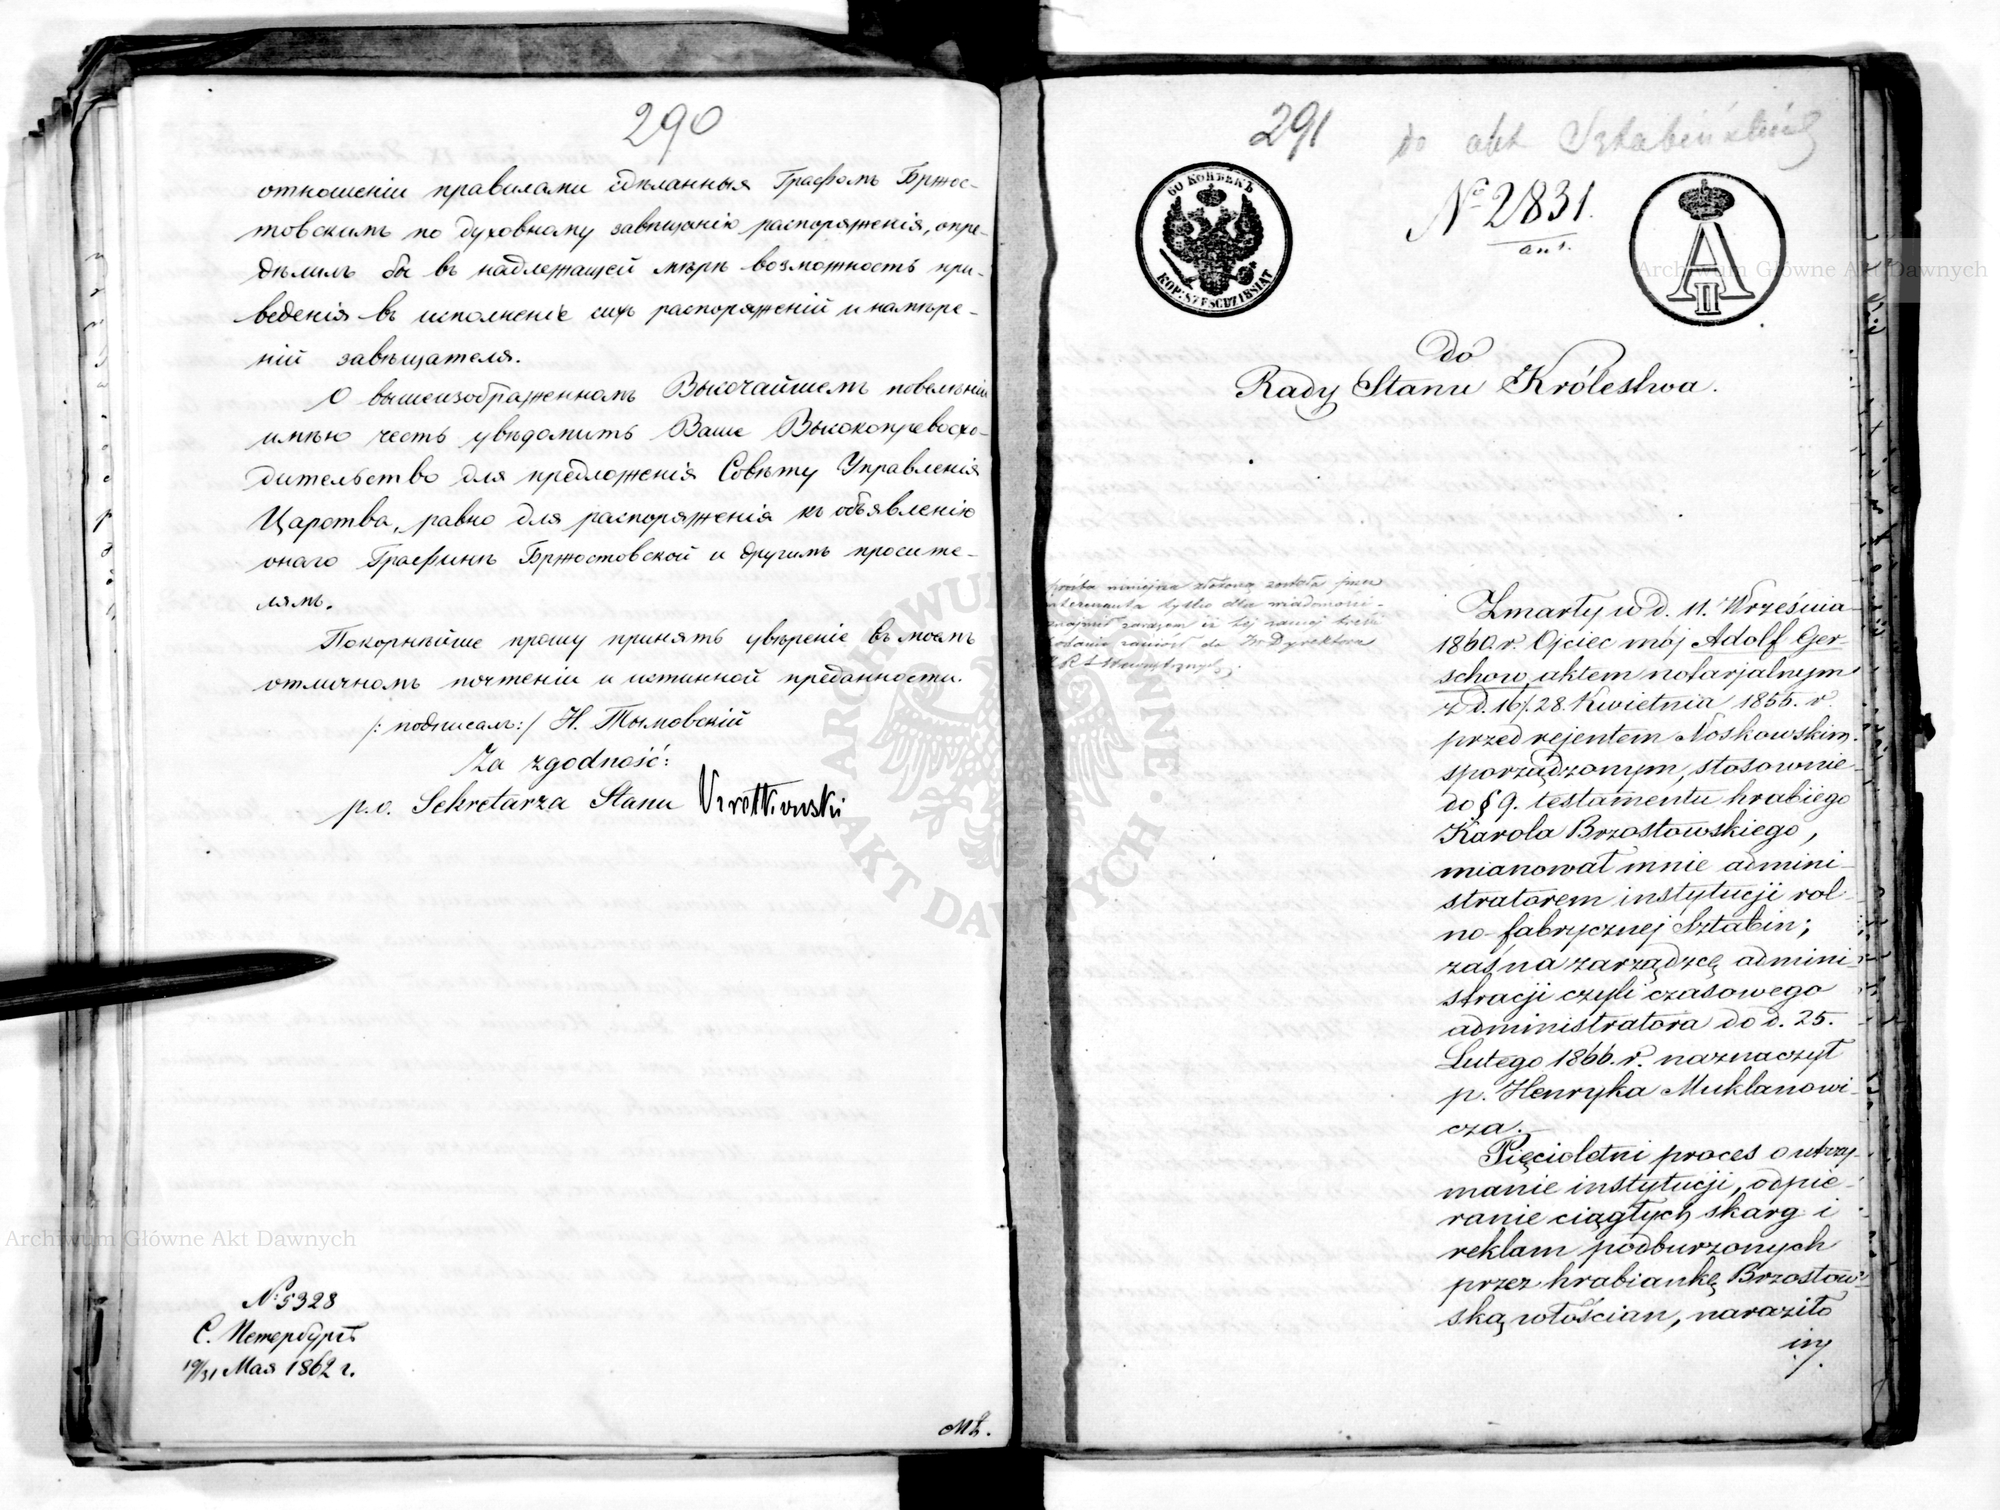 290
отношеніи правилами сдѣланныя Графомъ Бржос-
товскимъ по духовному завѣщанію распоряженія, опре-
дѣлилъ бы въ надлежащей мѣрѣ возможность при-
веденія въ исполненіе сихъ распоряженій и намѣре-
ній завѣщателя.
О вышеизображенномъ Высочайшемъ повелѣніи
имѣю честь увѣдомить Ваше Высокопревосхо-
дительство для предложенія Совѣту Управленія
Царства, равно для распоряженія къ объявленію
онаго Графинѣ Бржостовской и другимъ просите-
лямъ.
Покорнѣйше прошу принять увѣреніе въ моемъ
отличномъ почтеніи и истинной преданности.
/: подписалъ :/ Н. Тымовскій
Za zgodność:
p.o. Sekretarza Stanu
№ 5328
С. Петербургъ
19/31 Мая 1862 г.
291
do akt
60 КОПѢЕКЪ
KOP. SZEŚĆDZIESIĄT
№ 2831.
A II
do
Rady Stanu Królestwa.
prośba niniejsza złożoną została przez
tylko dla wiadomości
zarazem iż tej samej treści
podanie zaniósł do Dyrektora
Zmarły w d. 11. Września
1860. r. Ojciec mój Adolf Ger-
schow, aktem notarjalnym
z d. 16/28. Kwietnia 1855. r.
przed rejentem Noskowskim
sporządzonym, stosownie
do § 9. testamentu hrabiego
Karola Brzostowskiego,
mianował mnie admini-
stratorem instytucji rol-
no-fabrycznej Sztabin;
zaś na zarządzcę admini-
stracji czyli czasowego
administratora do d. 25.
Lutego 1866. r. naznaczył
p. Henryka Muklanowi-
cza.
Pięcioletni proces o utrzy-
manie instytucji, odpie-
ranie ciągłych skarg i
reklam podburzonych
przez hrabiankę Brzostow-
ską włościan, naraziło
in/.
Archiwum Główne Akt Dawnych
Archiwum Główne Akt Dawnych
ARCHIWUM GŁÓWNE AKT DAWNYCH